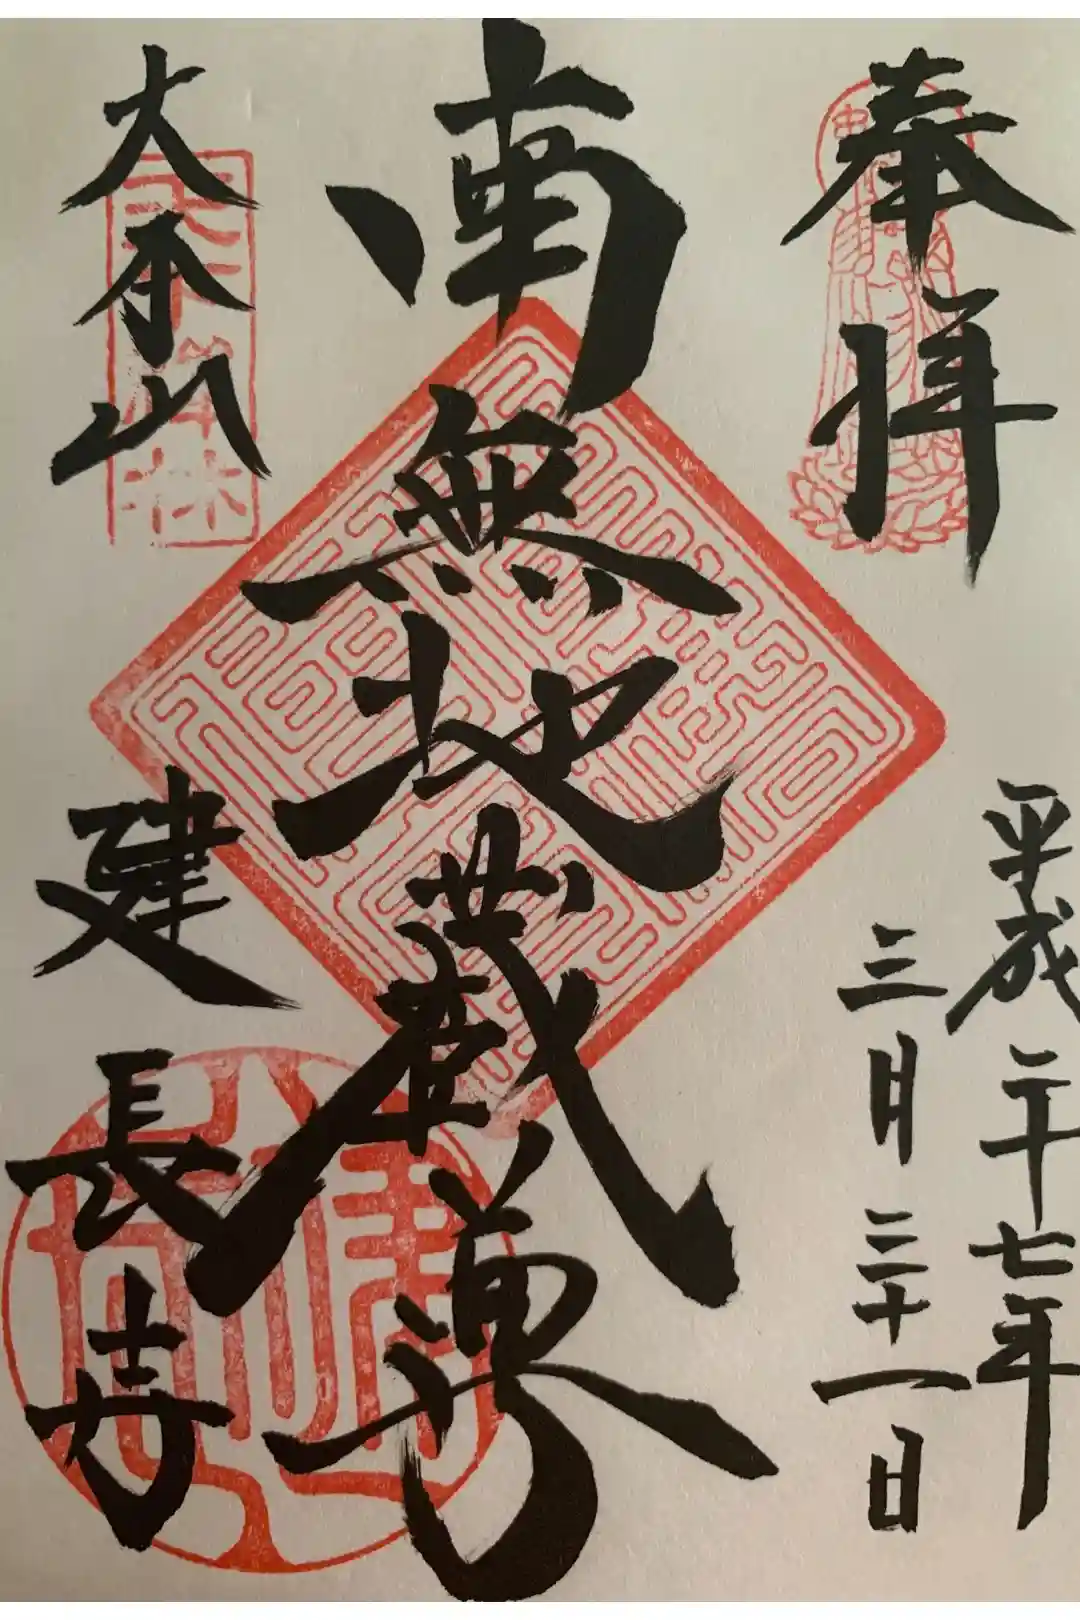 奉拝
平成二十七年
三月三十一日
南無地蔵尊
大本山
建長寺